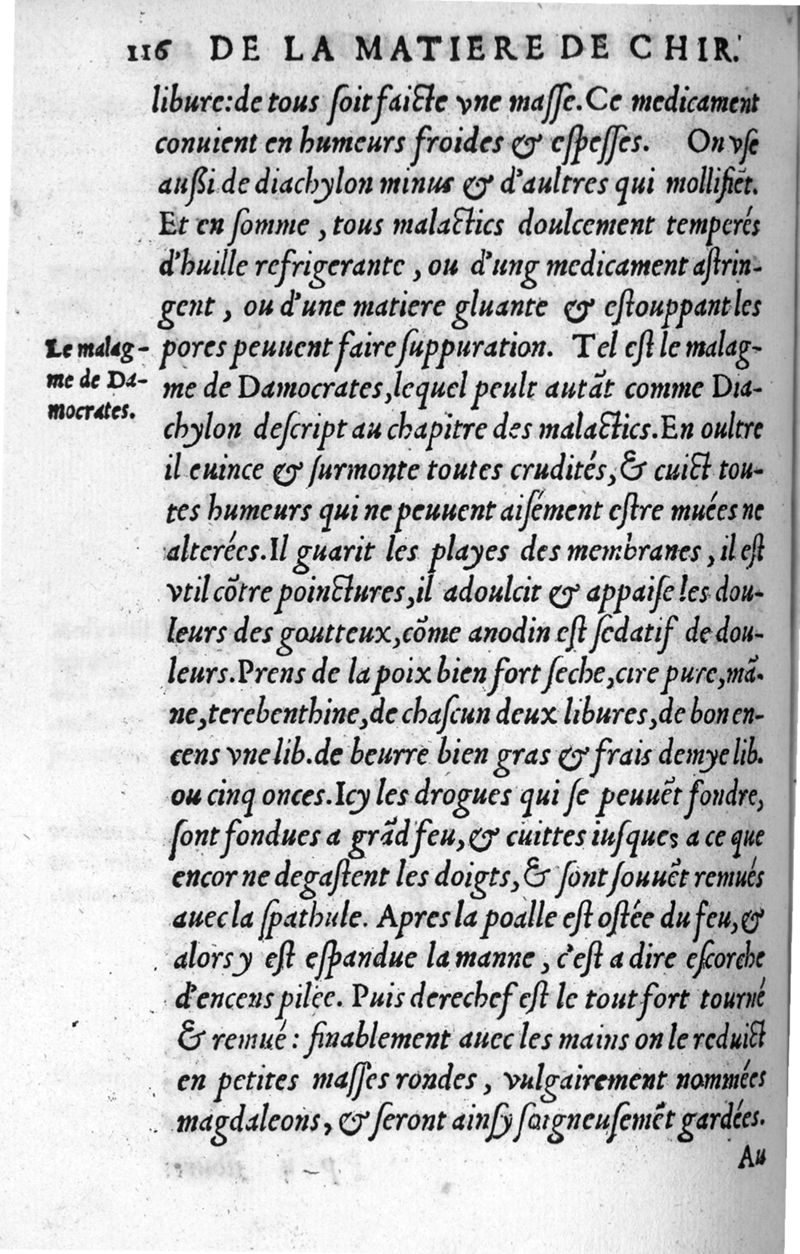 116 DE LA MATIERE DE CHIR.
libure:de tous ſoit faicte vne maſſe.Ce medicament
conuient en humeurs froides & eſpeſſes. On vſe
außi de diachylon minus & d'aultres qui mollifiẽt.
Et en ſomme , tous malactics doulcement temperés
d'huille refrigerante , ou d'ung medicament aſtrin-
gent , ou d'une matiere gluante & eſtouppant les
pores peuuent faire ſuppuration. Tel eſt le malag-
me de Damocrates,lequel peult autãt comme Dia-
chylon deſcript au chapitre des malactics.En oultre
il euince & ſurmonte toutes crudités,& cuict tou-
tes humeurs qui ne peuuent aiſément eſtre muées ne
alterées.Il guarit les playes des membranes , il eſt
vtil cõtre poinctures,il adoulcit & appaiſe les dou-
leurs des goutteux,cõme anodin eſt ſedatif de dou-
leurs.Prens de la poix bien fort ſeche,cire pure,mã-
ne,terebenthine,de chaſcun deux libures,de bon en-
cens vne lib.de beurre bien gras & frais demye lib.
ou cinq onces.Icy les drogues qui ſe peuuẽt fondre,
ſont fondues a grãd feu,& cuittes iuſques a ce que
encor ne degaſtent les doigts,& ſont ſouuẽt remués
auec la ſpathule. Apres la poalle eſt oſtée du feu,&
alors y eſt eſpandue la manne , c'eſt a dire eſcorche
d'encens pilée. Puis derechef eſt le tout fort tourné
& remué : finablement auec les mains on le reduict
en petites maſſes rondes , vulgairement nommées
magdaleons, & ſeront ainſy ſoigneuſemẽt gardées.
Au
Le malag-
me de Da-
mocrates.